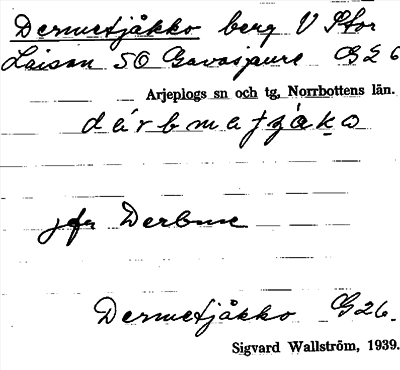 Dermetjåkko berg V Stor
Laisan SO Gavasjaure G26
Arjeplogs sn och tg, Norrbottens län.
därbmatjåko
jfr Derbme
Dermetjåkko G26.
Sigvard Wallström, 1939.